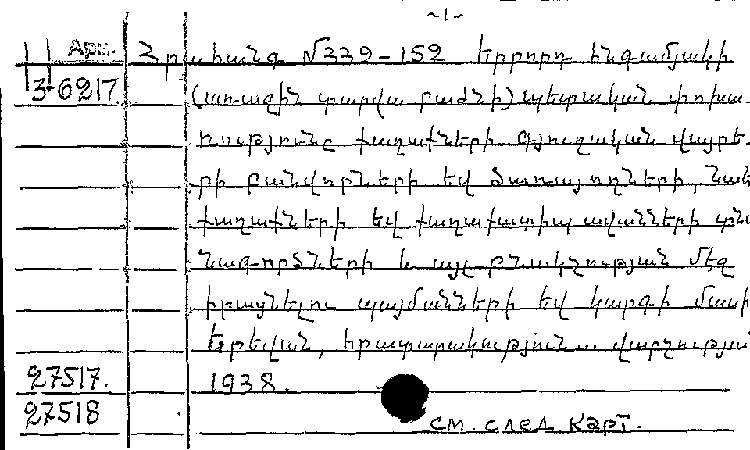 ~1~
Арм. Հրահանգ №339-152 երրորդ հնգամյակի
3-6217 (առաջին տարվա բաժնի) պետական փոխա-
ռությունը քաղաքների գյուղական վայրե-
րի բանվորների եվ ծառայողների, նաև
քաղաքների եվ քաղաքատիպ ավանների տն
նագործների և այլ բնակչության մեջ
իրացնելու պայմանների եվ կարգի մասի
Երեվան, հրատարակություն վարչությա
27517. 1938.
27518
см. след карт.